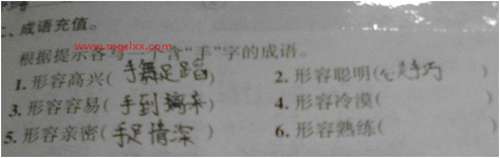 二、成语充值。
www.mgslxx.com
根据提示各写一个含“手”字的成语。
1. 形容高兴(手舞足蹈) 2. 形容聪明(心灵手巧)
3. 形容容易(手到擒来) 4. 形容冷漠( )
5. 形容亲密(手足情深) 6. 形容熟练( )